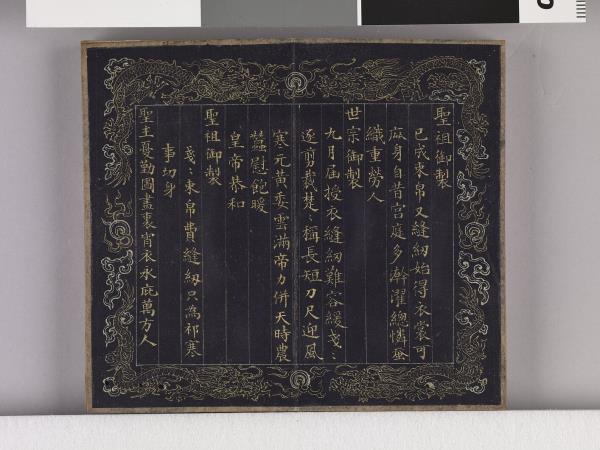 聖祖御製
已成束帛又縫紉始得衣裳可
庇身自昔宮庭多澣濯總憐蚕
織重勞人
世宗御製
九月屆授衣縫紉難容緩戔〻
逐剪裁楚〻稱長短刀尺迎風
寒元黃委雲滿帝力併天時農
蠶慰飽暖
皇帝恭和
聖祖御製
戔〻束帛費縫紉只為祁寒
事切身
聖主憂勤圖畫裏宵衣永庇萬方人